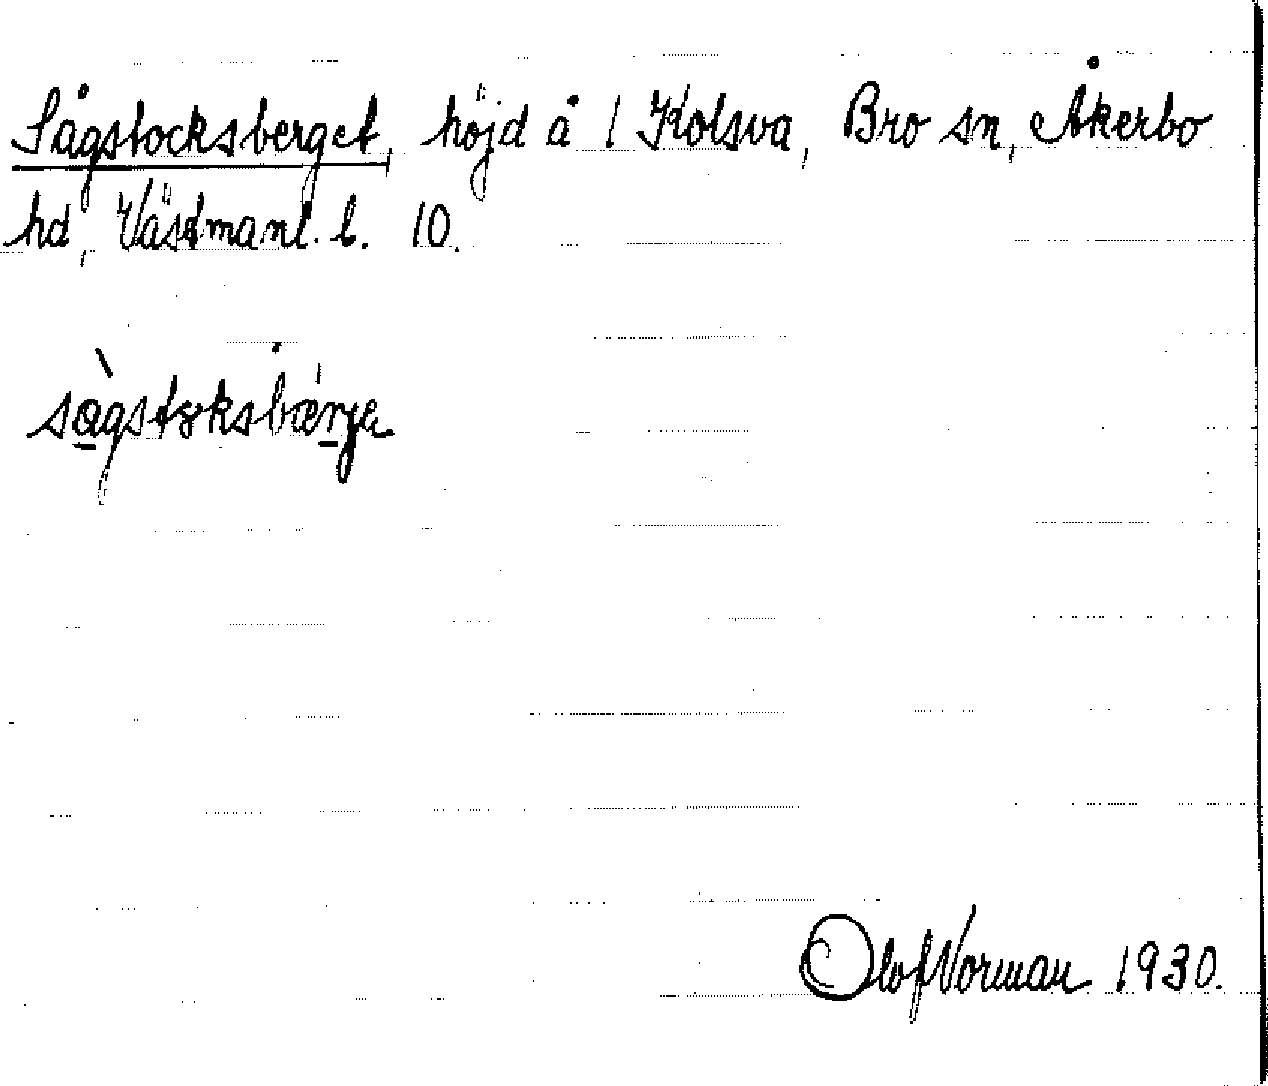 Sågstocksberget, höjd å 1 Kolsva, Bro sn, Åkerbo
hd, Västmanl. l. 10.
sàgstɤksbærjɛ
Olof Norman 1930.